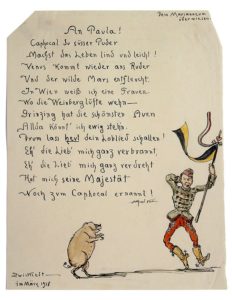 Dem Marimuseum
überwiesen
An Paula!
Caphocal du süsser Puder
Machst das Leben lind und leicht!
Venus kommt wieder ans Ruder
Und der wilde Mars entfleucht.
In Wien weiß ich eine Frauen
Wo die Weinberglüfte wehn—
Grinzing hat die schönsten Auen
Allda könnt' ich ewig stehn.
Drum lass dein Loblied schallen!
Eh' die Lieb' mich ganz verbrannt,
Eh' die Lieb' mich ganz verdreht
Hat mich seine Majestät
Noch zum Caphocal ernannt!
Zwittelt—
im März 1918